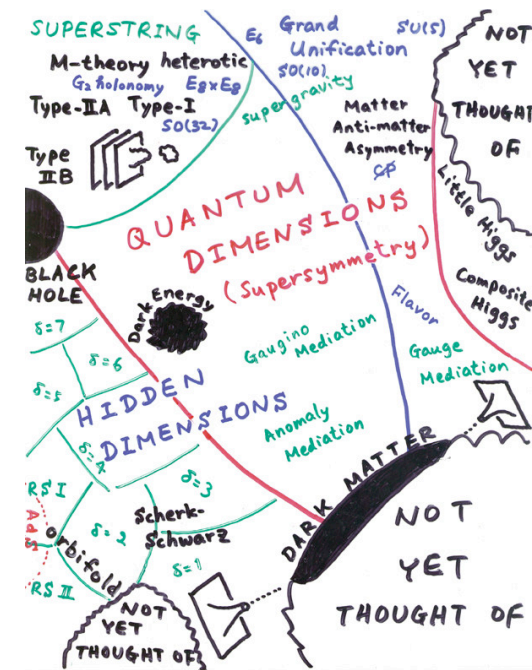 SUPERSTRING
M-theory heterotic
G₂ holonomy E₈×E₈
Type-IIA Type-I
SO(32)
Type
IIB
E₆ Grand
Unification
SU(5)
SO(10)
supergravity
Matter
Anti-matter
Asymmetry
CP
NOT
YET
THOUGHT
OF
Little Higgs
Composite
Higgs
QUANTUM
DIMENSIONS
(Supersymmetry)
BLACK
HOLE
Dark Energy
Flavor
Gaugino
Mediation
Gauge
Mediation
Anomaly
Mediation
δ=7
δ=6
δ=5
HIDDEN
DIMENSIONS
δ=4
δ=3
RS I
AdS
orbifold
δ=2
Scherk-
Schwarz
δ=1
RS II
DARK MATTER
NOT
YET
THOUGHT OF
NOT
YET
THOUGHT OF